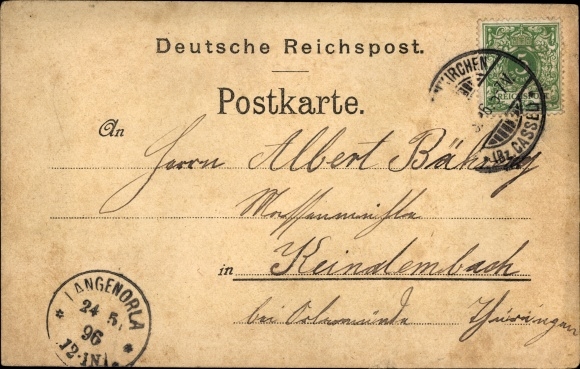 Deutsche Reichspost.
Postkarte.
An
Herrn Albert Bähring
in Keindembach
bei Orlamünde Thüringen
KIRCHEN
(BZ. CASSEL)
REICHSPOST
5
LANGENORLA
24 5.
96
12-1N.